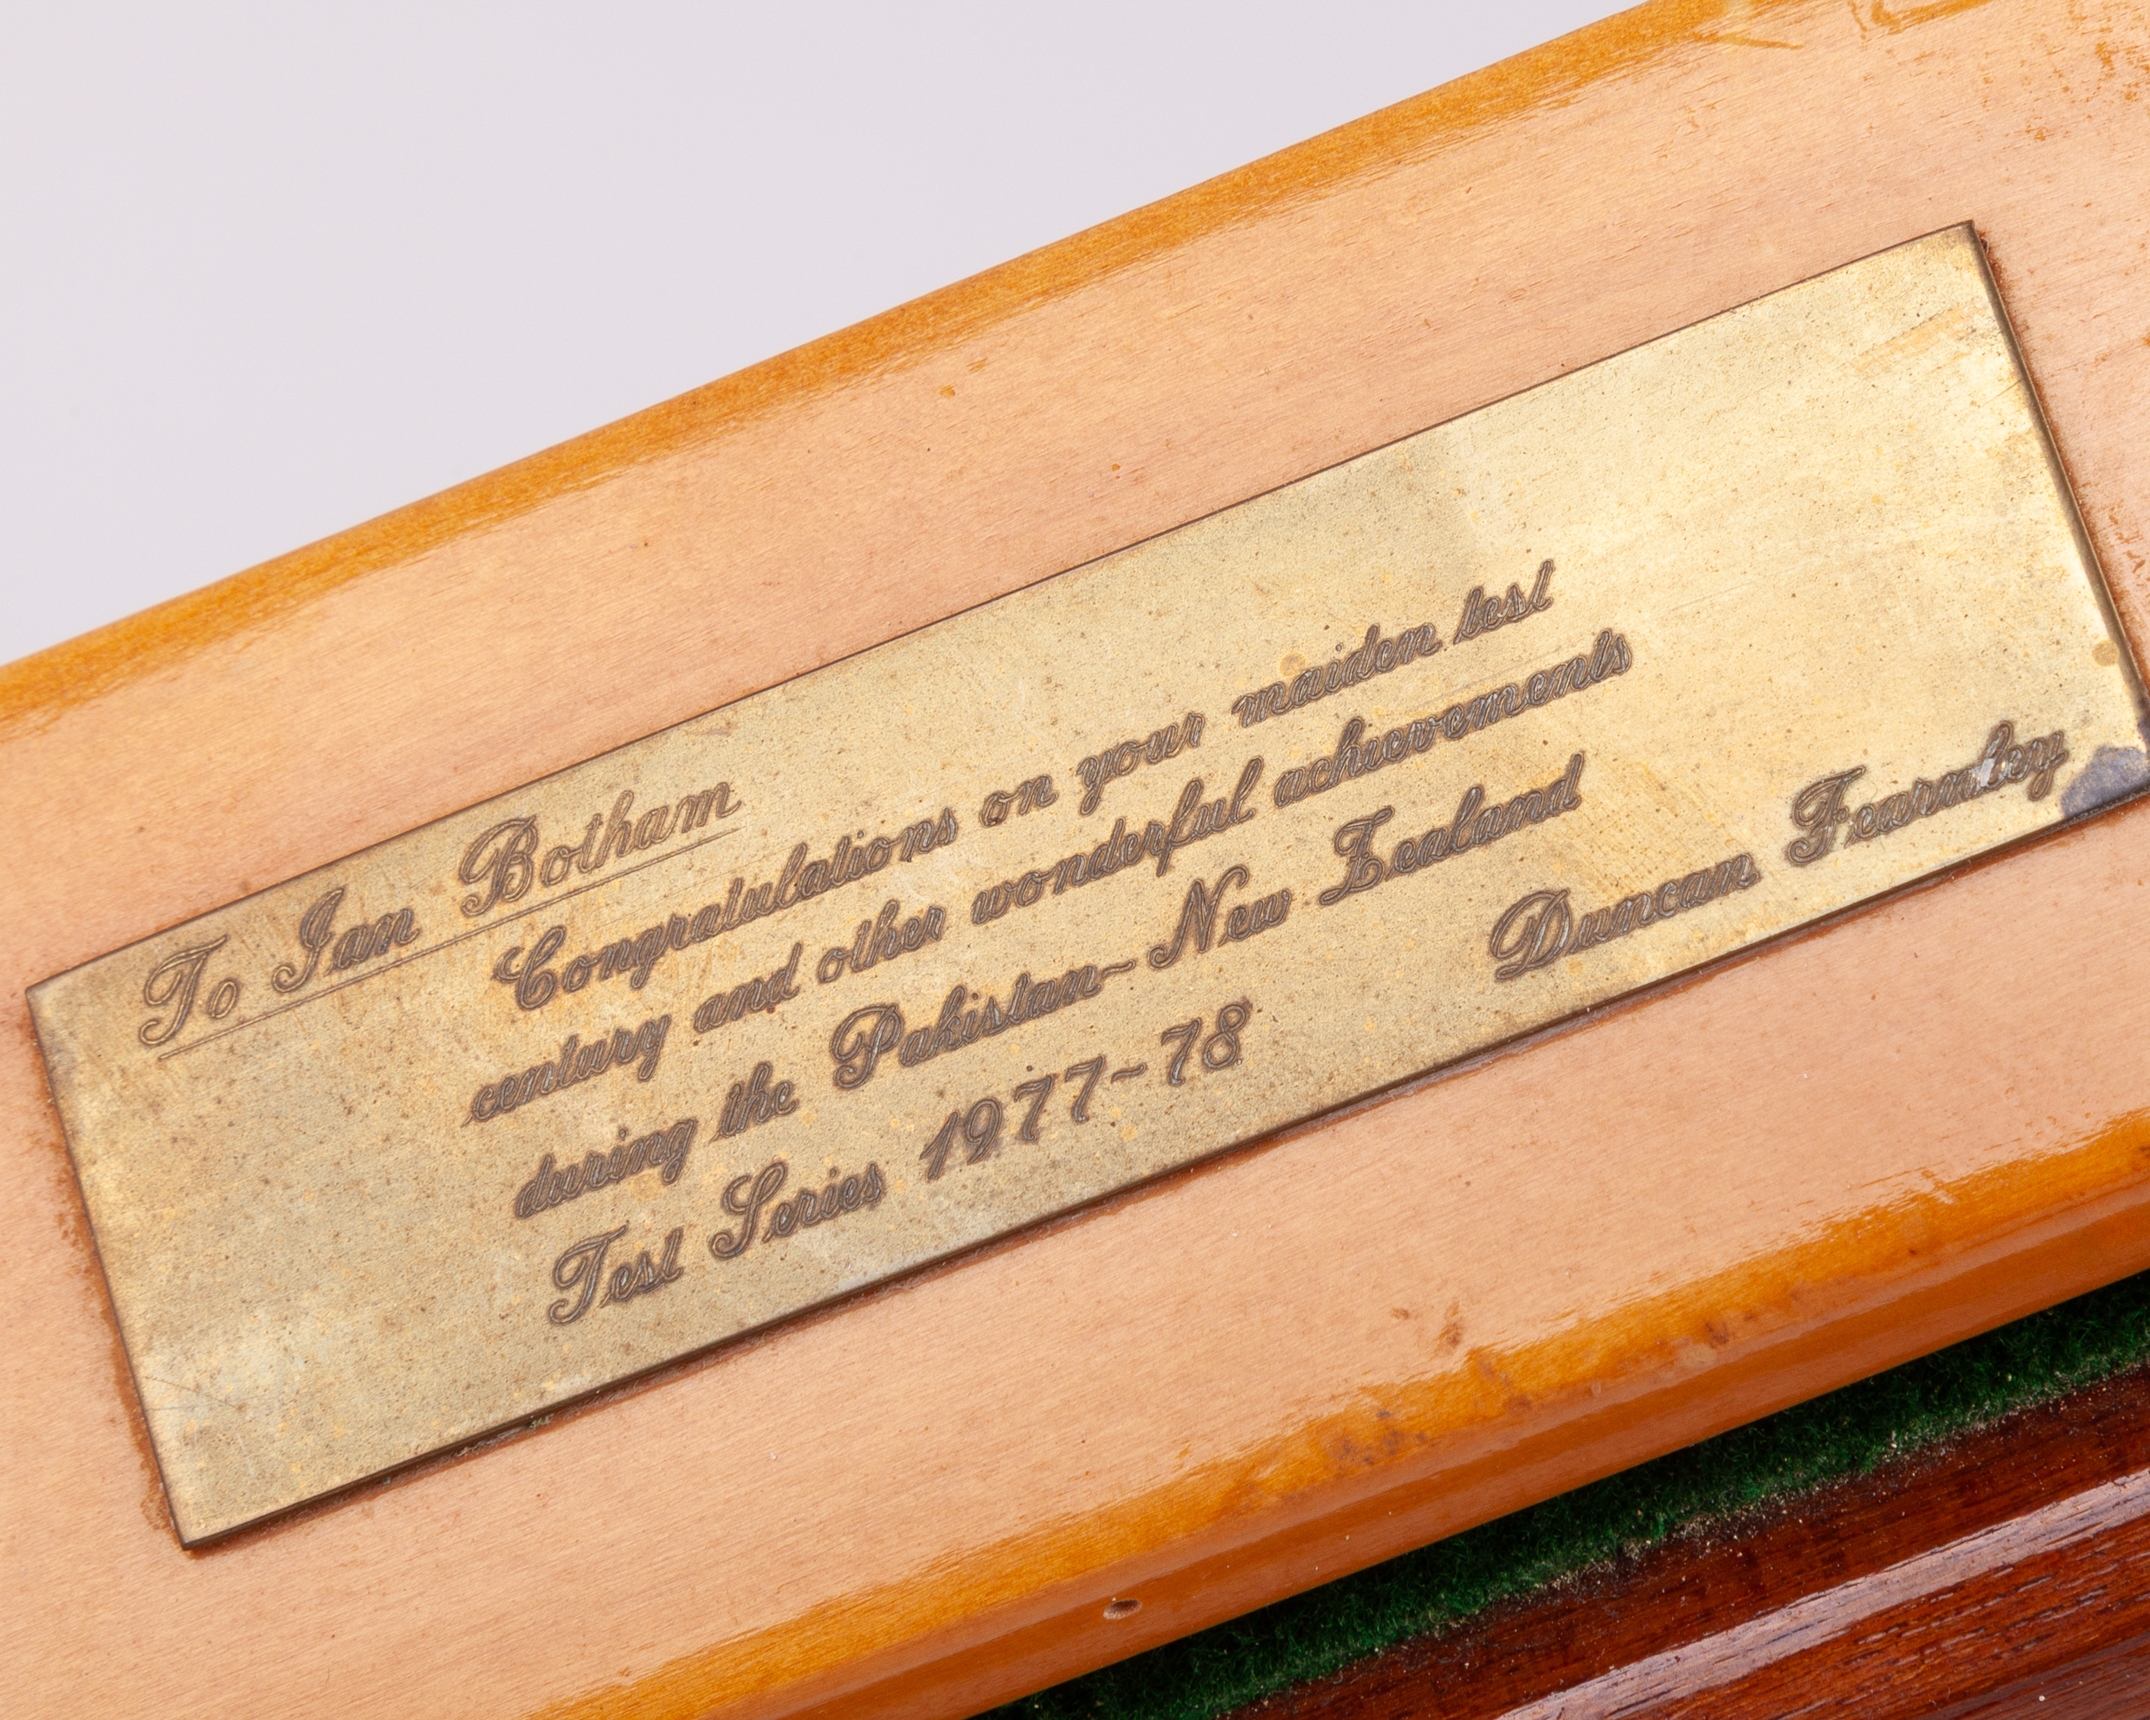 To Ian Botham
Congratulations on your maiden test
century and other wonderful achievements
during the Pakistan~New Zealand
Test Series 1977~78
Duncan Fearnley